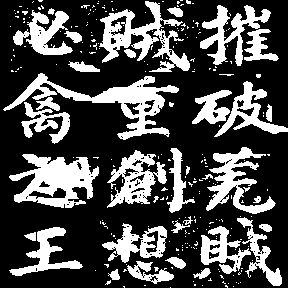 摧破羌賊
賊重創想
必禽王